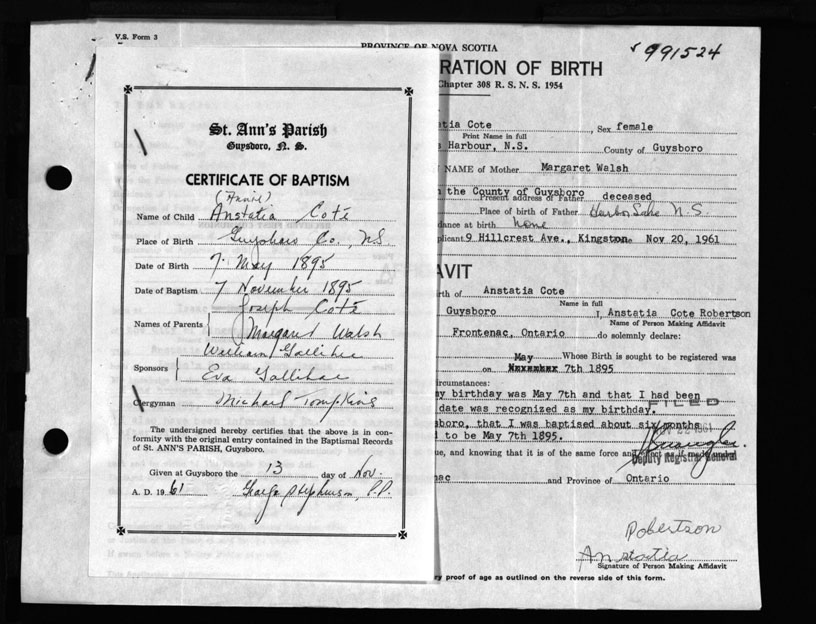 V.S. Form 3
St. Ann's Parish
Guysboro, N. S.
CERTIFICATE OF BAPTISM
(Annie)
Name of Child Anstatia Coté
Place of Birth Guysboro Co., N.S.
Date of Birth 7 May 1895
Date of Baptism 7 November 1895
Names of Parents Joseph Coté
Margaret Walsh
Sponsors William Gallihae
Eva Gallihae
Clergyman Michael Tompkins
The undersigned hereby certifies that the above is in con-
formity with the original entry contained in the Baptismal Records
of St. ANN'S PARISH, Guysboro.
Given at Guysboro the 13 day of Nov.
A. D. 1961 George Stephenson, P.P.
PROVINCE OF NOVA SCOTIA
991524
RATION OF BIRTH
Chapter 308 R. S. N. S. 1954
tatia Cote Sex female
Print Name in full
Harbour, N.S. County of Guysboro
NAME of Mother Margaret Walsh
n the County of Guysboro
Present address of Father deceased
Place of birth of Father N.S.
dance at birth None
plicant 9 Hillcrest Ave., Kingston Nov 20, 1961
AVIT
rth of Anstatia Cote
Name in full
Guysboro I, Anstatia Cote Robertson
Name of Person Making Affidavit
Frontenac, Ontario do solemnly declare:
May Whose Birth is sought to be registered was
on 7th 1895
ircumstances:
my birthday was May 7th and that I had been
date was recognized as my birthday.
FILED
sboro, that I was baptised about six months
d to be May 7th 1895.
22 1961
ue, and knowing that it is of the same force and effect as if made under
Deputy Registrar General
nac and Province of Ontario
Robertson
Anstatia
Signature of Person Making Affidavit
ry proof of age as outlined on the reverse side of this form.